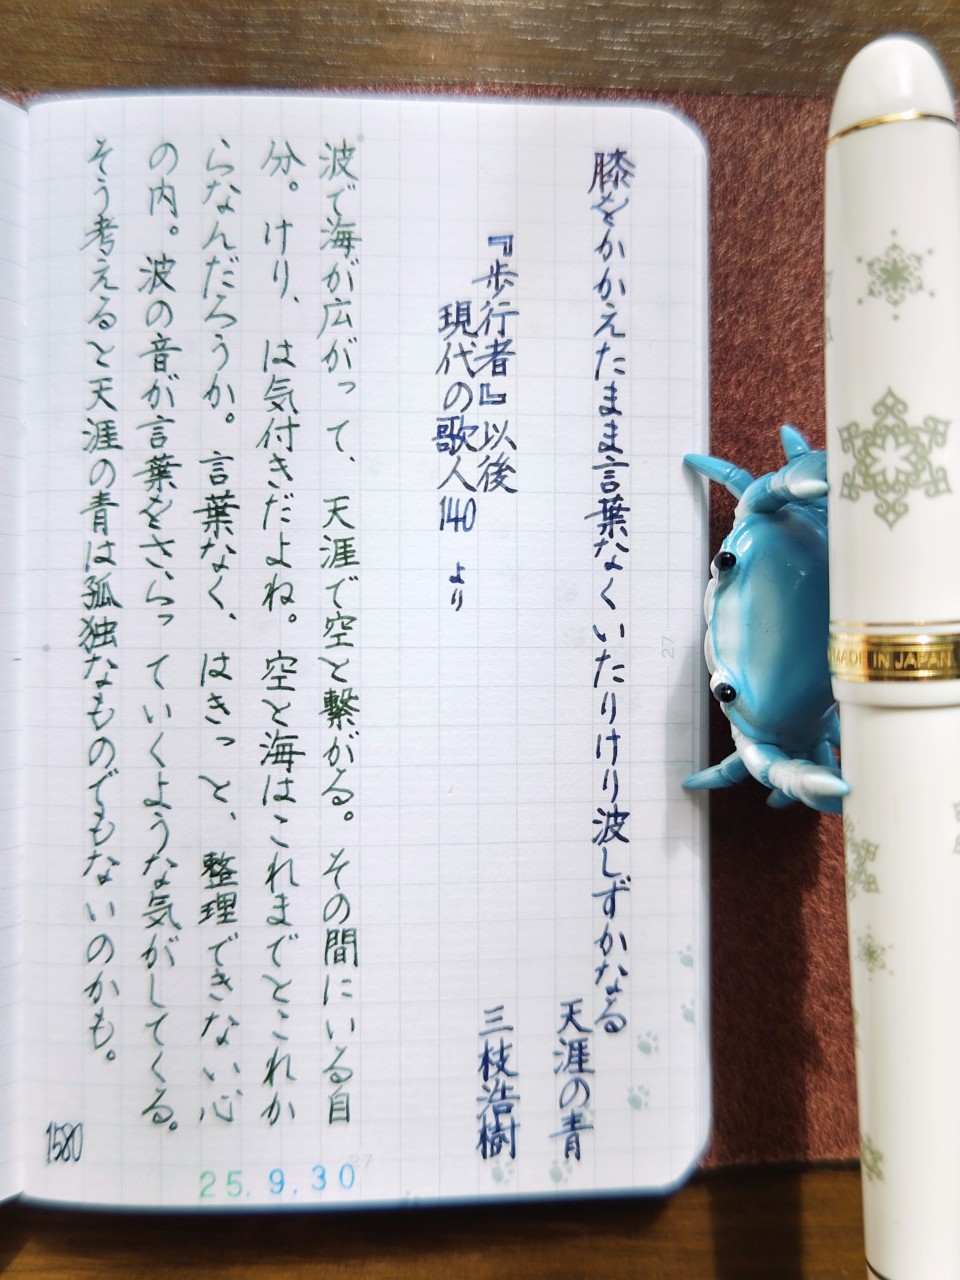 膝をかかえたまま言葉なくいたりけり波しずかなる
天涯の青
三枝浩樹
『歩行者』以後
現代の歌人140 より
波で海が広がって、天涯で空と繋がる。その間にいる自
分。けり、は気付きだよね。空と海はこれまでとこれか
らなんだろうか。言葉なく、はきっと、整理できない心
の内。波の音が言葉をさらっていくような気がしてくる。
そう考えると天涯の青は孤独なものでもないのかも。
1580
25.9.30
27
27
MADE IN JAPAN